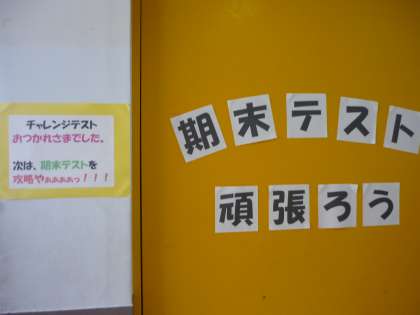 チャレンジテスト
おつかれさまでした。
次は、期末テストを
攻略やぁぁぁぁっ！！！
期末テスト
頑張ろう